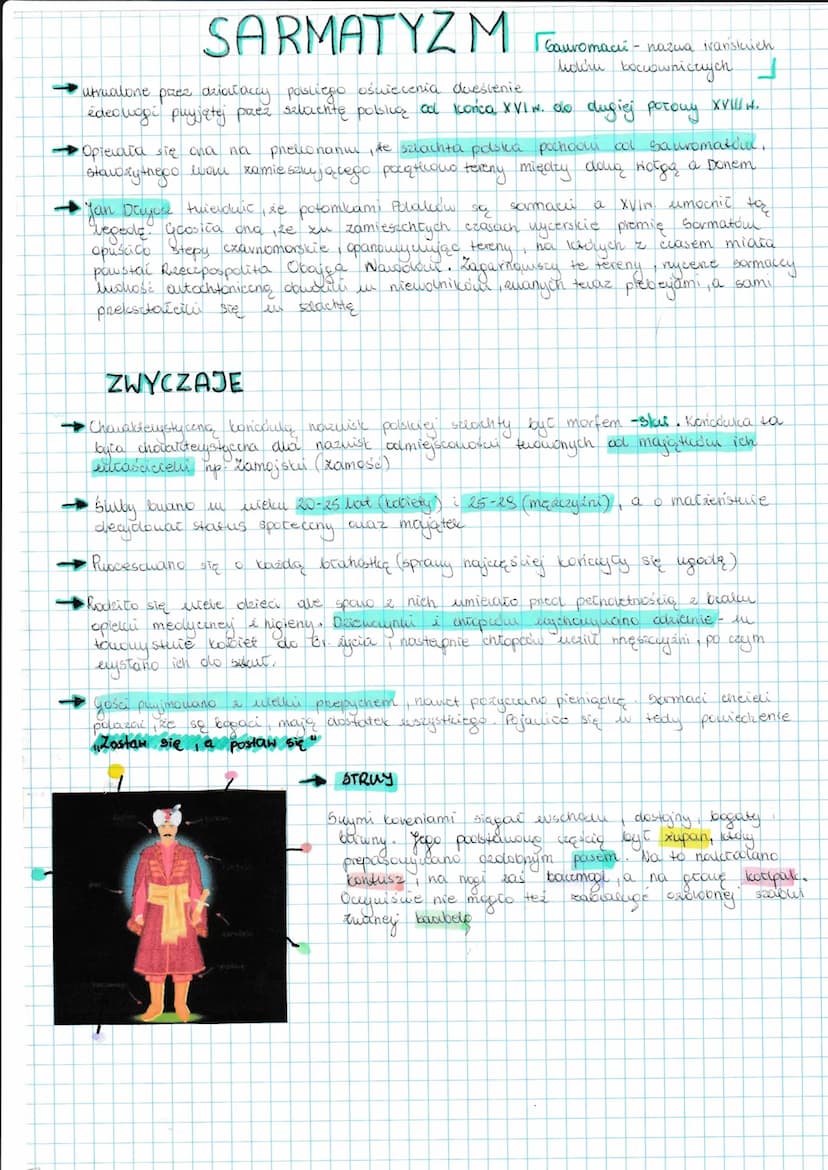 SARMATYZM
Sauromaci - nazwa irańskich
ludów koczowniczych
→ utrwalone przez działaczy polskiego oświecenia określenie
ideologi przyjętej przez szlachtę polską od końca XVI w. do drugiej połowy XVIII w.
→ Opierała się ona na przekonaniu, że szlachta polska pochodzi od Sauromatów,
starożytnego ludu zamieszkującego początkowo tereny między dolną Wołgą a Donem
→ Jan Długosz twierdził, że potomkami Polaków są sarmaci a XVI w. umocnił tą
legedę. Głosiła ona, że w zamieszchłych czasach rycerskie plemię Sarmatów
opuściło stepy czarnomorskie, opanowywując tereny, na których z czasem miała
powstać Rzeczpospolita Obojga Narodów. Zagarnąwszy te tereny, rycerze sarmaccy
ludność autochtoniczną obrócili w niewolników, zwanych teraz plebejami, a sami
przekształcili się w szlachtę
ZWYCZAJE
→ Charakterystyczną końcówką nazwisk polskiej szlachty był morfem -ski. Końcówka ta
była charakterystyczna dla nazwisk odmiejscowości tworzonych od majątków ich
właścicieli np. Zamojski (Zamość)
→ Śluby brano w wieku 20-25 lat (kobiety) i 25-28 (mężczyźni), a o małżeństwie
decydował status społeczny oraz majątek
→ Procesowano się o każdą błahostkę (sprawy najczęściej kończyły się ugodą)
→ Rodziło się wiele dzieci ale sporo z nich umierało przed pełnoletnością z braku
opieki medycznej i higieny. Dziewczynki i chłopców wychowywano odzielnie - w
towarzystwie kobiet do 6r. życia, następnie chłopców uczili mężczyźni, po czym
wysłano ich do szkół.
→ Gości przyjmowano z wielki przepychem, nawet pożyczano pieniądze. Sarmaci chcieli
pokazać, że są bogaci, mają dostatek wszystkiego. Pojawiło się w tedy powiedzenie
„Zastaw się, a postaw się"
→ STRUY
Swymi korzeniami sięgał wschodu, dostojny, bogaty
barwny. Jego podstawową częścią był żupan, który
przepasowywano ozdobnym pasem. Na to nakładano
kontusz, na nogi zaś baczmagi, a na głowę kołpak.
Oczywiście nie mogło też zabraknąć ozdobnej szabli
zwanej karabelą